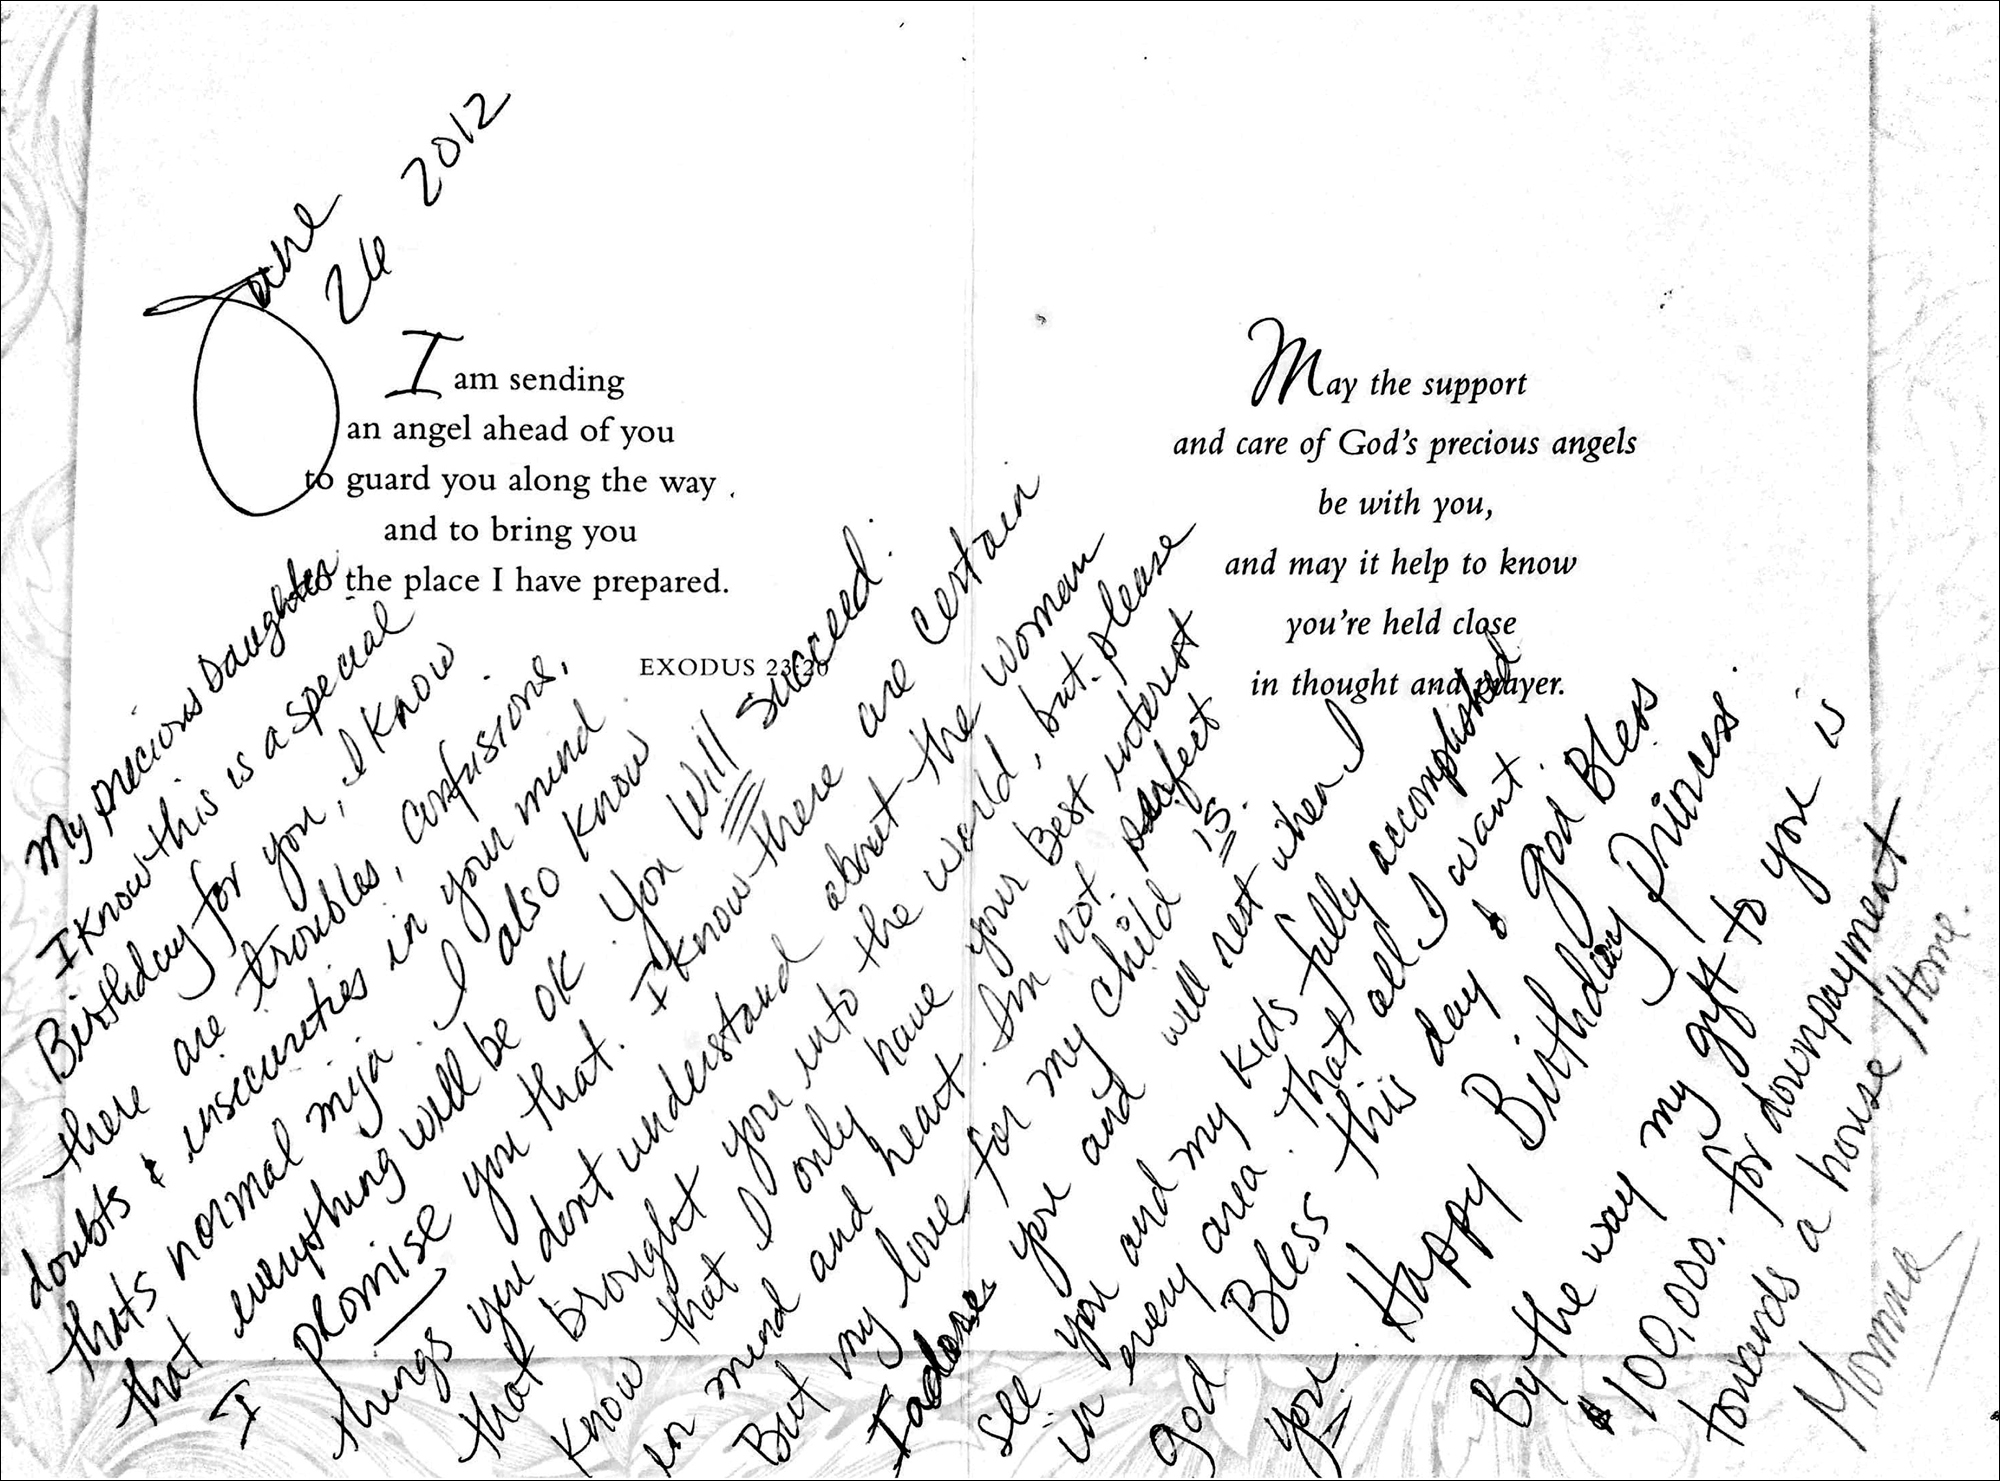 June
26 2012
I am sending
an angel ahead of you
to guard you along the way
and to bring you
to the place I have prepared.
EXODUS 23:20
May the support
and care of God's precious angels
be with you,
and may it help to know
you're held close
in thought and prayer.
My precious Daughter
I know this is a special
Birthday for you, I know
there are troubles, confusions,
doubts & insecurities in your mind
thats normal mija. I also know
that everything will be ok. You will succeed.
I promise you that. I know there are certain
things you dont understand about the woman
that brought you into the world, but please
know that I only have your best interest
in mind and heart. Im not perfect
But my love for my child is.
I adore you and will rest when I
see you and my kids fully accomplished
in every area. That all I want.
God Bless this day & God Bless
you. Happy Birthday Princess.
By the way my gift to you is
$100,000. for downpayment
towards a house/Home.
Momma